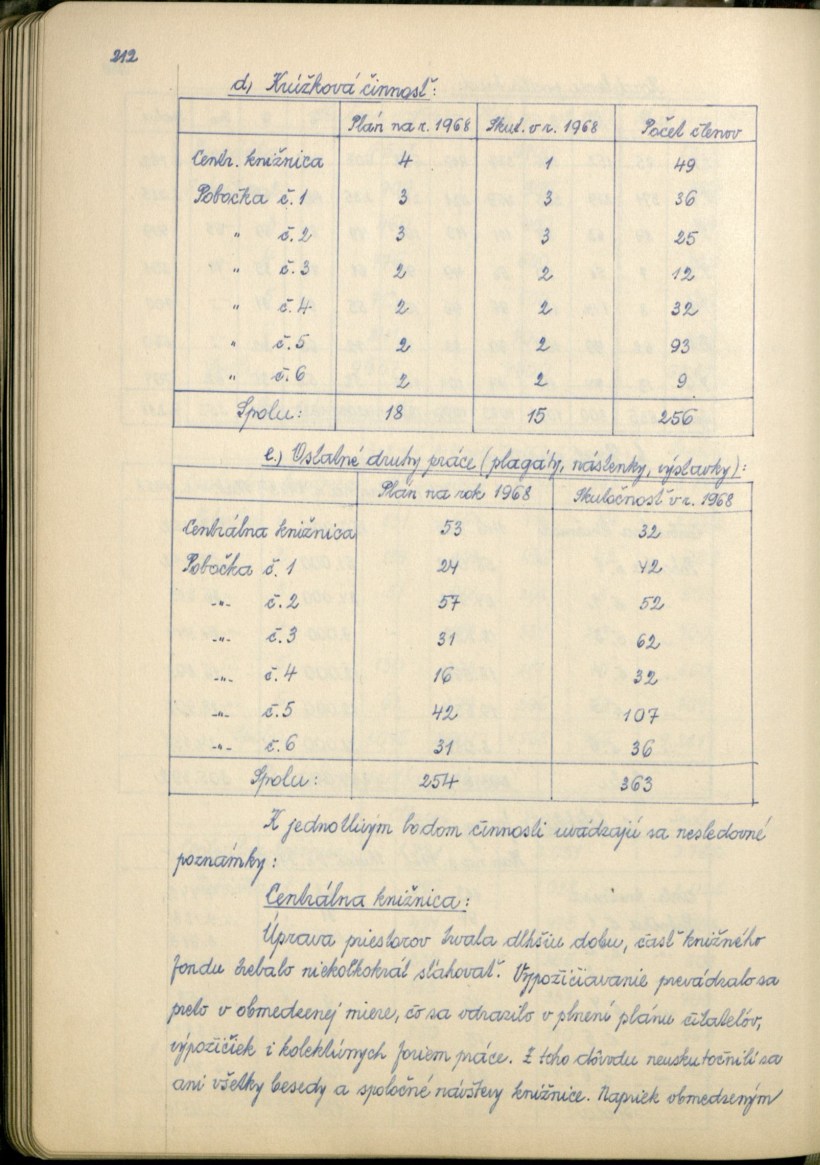 212
d, Krúžková činnosť:
Plán na r. 1968 Skut. v r. 1968 Počet členov
Centr. knižnica 4 1 49
Pobočka č. 1 3 3 36
„ č. 2 3 3 25
„ č. 3 2 2 12
„ č. 4 2 2 32
„ č. 5 2 2 93
„ č. 6 2 2 9
Spolu: 18 15 256
e.) Ostatné druhy práce (plagáty, nástenky, výstavky):
Plán na rok 1968 Skutočnosť v r. 1968
Centrálna knižnica 53 32
Pobočka č. 1 24 42
-„- č. 2 57 52
-„- č. 3 31 62
-„- č. 4 16 32
-„- č. 5 42 107
-„- č. 6 31 36
Spolu: 254 363
K jednotlivým bodom činnosti uvádzajú sa nesledovné
poznámky:
Centrálna knižnica:
Úprava priestorov trvala dlhšiu dobu, časť knižného
fondu trebalo niekoľkokrát sťahovať. Vypožičiavanie prevádzalo sa
preto v obmedzenej miere, čo sa odrazilo v plnení plánu čitateľov,
výpožičiek i kolektívnych foriem práce. Z toho dôvodu neuskutočnili sa
ani všetky besedy a spoločné návštevy knižnice. Napriek obmedzeným